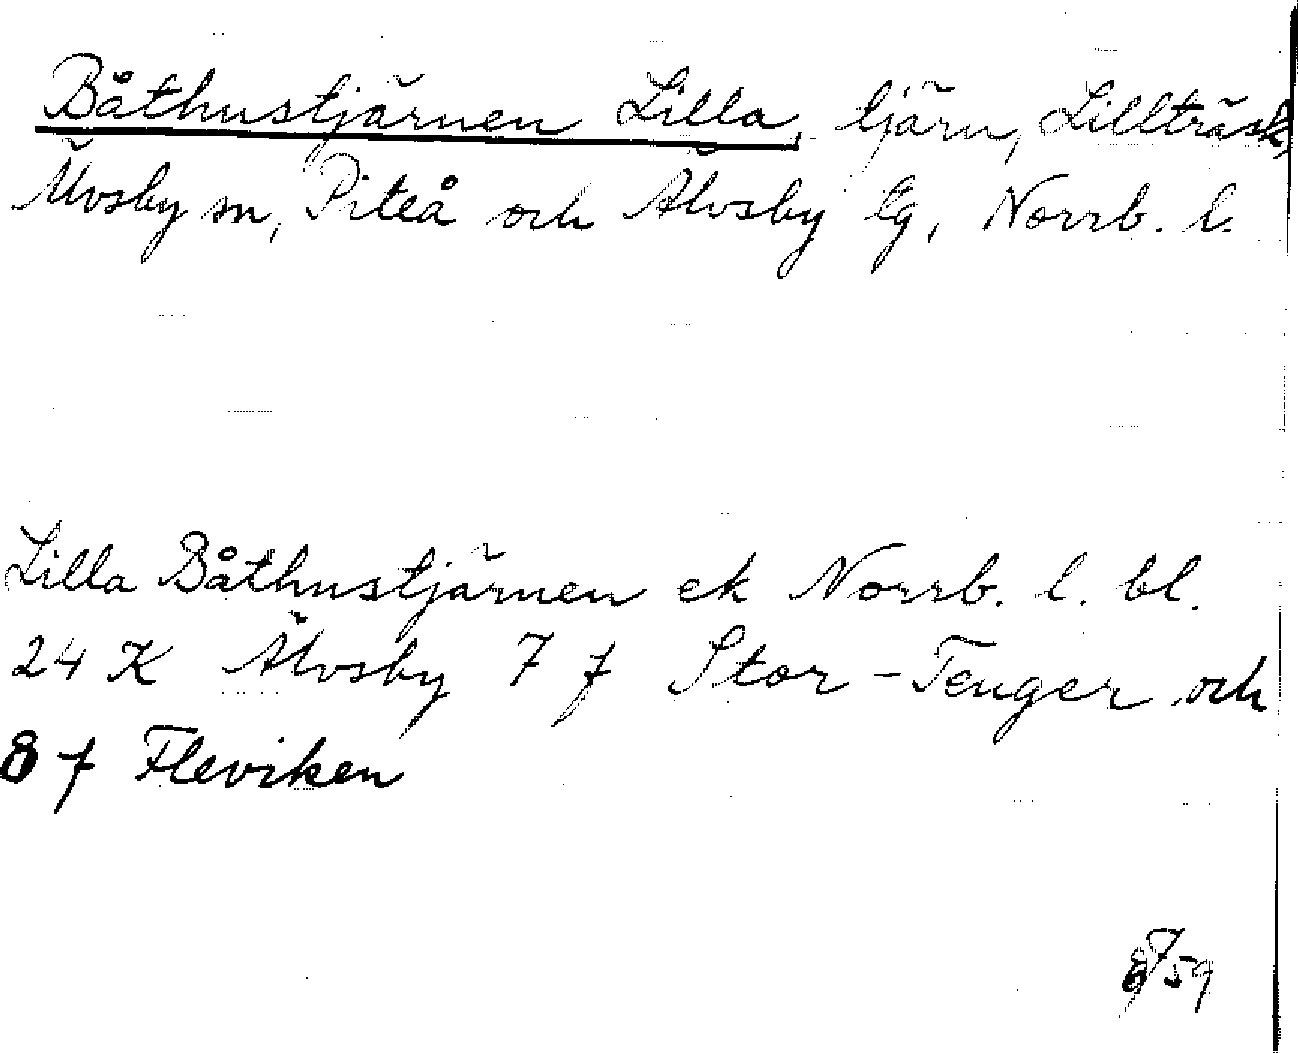 Båthustjärnen Lilla, tjärn, Lillträsk,
Älvsby sn, Piteå och Älvsby tg, Norrb. l.
Lilla Båthustjärnen ek Norrb. l. bl.
24 K Älvsby 7 f Stor-Tenger och
8 f Fleviken
59